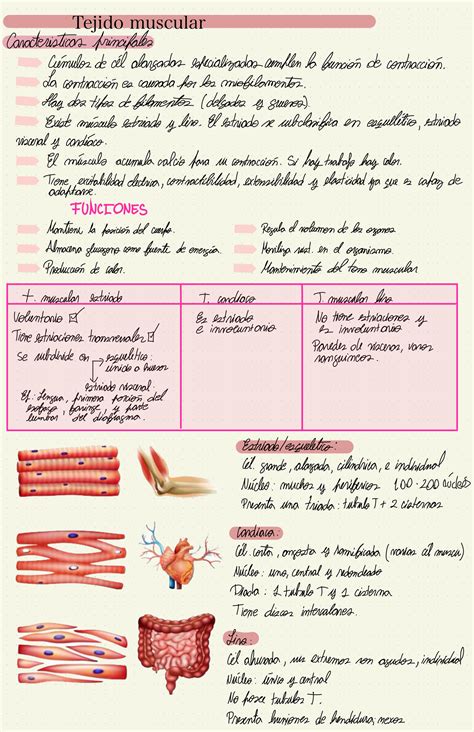 Tejido muscular
Características principales
Cúmulos de cél alargadas especializadas cumplen la función de contracción.
La contracción es causada por los miofilamentos.
Hay dos tipos de filamentos (delgados y gruesos).
Existe músculo estriado y liso. El estriado se subclasifica en esquelético, estriado
visceral y cardíaco.
El músculo acumula calcio para su contracción. Si hay trabajo hay calor.
Tiene excitabilidad eléctrica, contractibilidad, extensibilidad y elasticidad ya que es capaz de
adaptarse.
FUNCIONES
Mantiene la posición del cuerpo.
Almacena glucogeno como fuente de energía.
Producción de calor.
Regula el volumen de los organos
Moviliza sust. en el organismo.
Mantenimiento del tono muscular
t. muscular estriado
Voluntario ☑
Tiene estriaciones transversales ☑
Se subdivide en → esquelético:
unido a huesos
estriado visceral:
Ej: Lengua, primera porción del
esófago, faringe, y parte
lumbar del diafragma.
T. cardíaco
Es estriado
e involuntario
T. muscular liso
No tiene estriaciones y
es involuntario
Paredes de vísceras, vasos
sanguíneos.
Estriado/esquelético:
Cél. grande, alargada, cilíndrica, e individual
Núcleo: muchos y periféricos 100-200 núcleos
Presenta una triada: tubulo T + 2 cisternas
Cardíaco:
Cél. corta, ancha y ramificada (varias cél
Núcleo: uno, central y redondeado
Diada: 1 tubulo T y 1 cisterna
Tiene discos intercalares.
Liso:
Cél ahusada, sus extremos son agudos, individual
Núcleo: único y central
No posee tubulos T.
Presenta uniones de hendidura, nexos